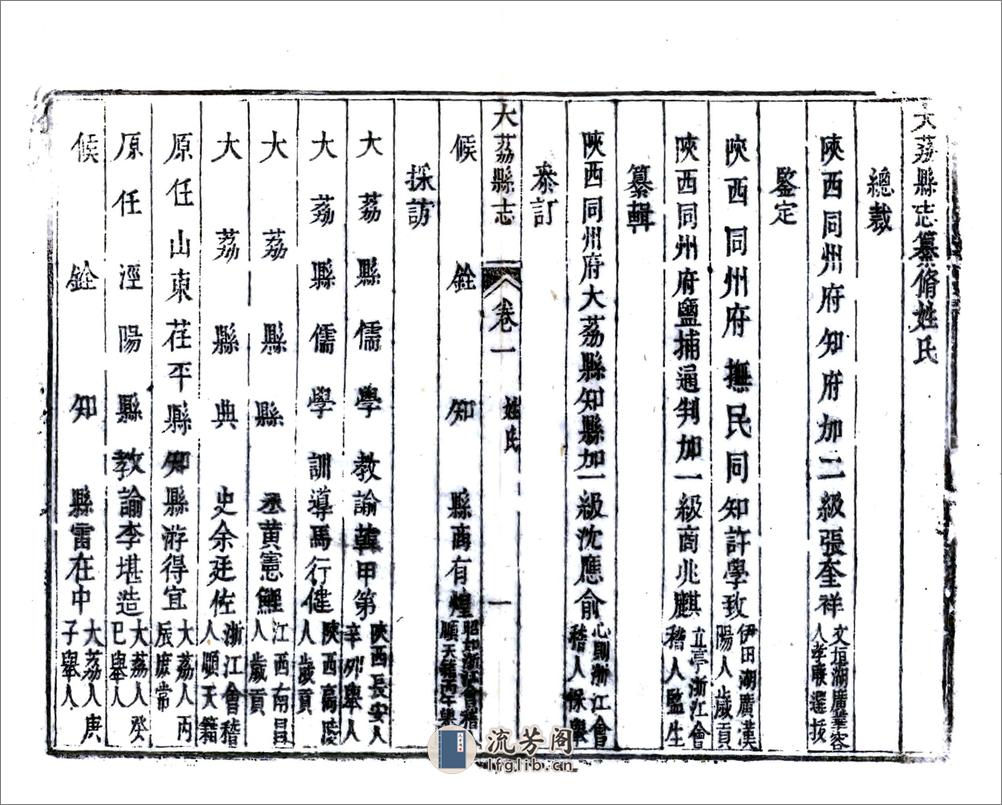 大荔縣志纂脩姓氏
總裁
陝西同州府知府加二級張奎祥文垣湖廣華容人孝廉選拔
鑒定
陝西同州府撫民同知許學致伊田湖廣漢陽人歲貢
陝西同州府鹽捕通判加一級商兆麒立亭浙江會稽人監生
纂輯
陝西同州府大荔縣知縣加一級沈應俞心周浙江會稽人保舉
叅訂
大荔縣志 卷一 姓氏 一
候銓知縣商有煌昭如浙江會稽順天籍丙午舉
採訪
大荔縣儒學教諭韓甲第陝西長安人辛卯舉人
大荔縣儒學訓導馬行健陝西高陵人歲貢
大荔縣縣丞黃憲鯉江西南昌人歲貢
大荔縣典史余廷佐浙江會稽人順天籍
原任山東茌平縣知縣游得宜大荔人丙辰庶常
原任涇陽縣教諭李堪造大荔人癸巳舉人
候銓知縣雷在中大荔人庚子舉人
流芳阁
lfglib.cn